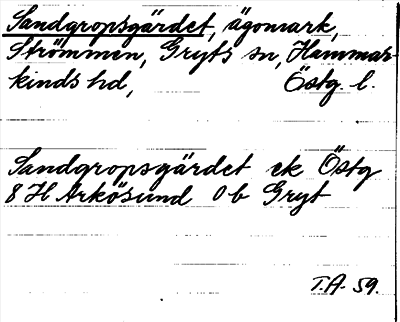 Sandgropsgärdet, ägomark,
Strömmen, Gryts sn, Hammar-
kinds hd, Östg. l.
Sandgropsgärdet ek Östg
8 H Arkösund 0 b Gryt
T.A. 59.